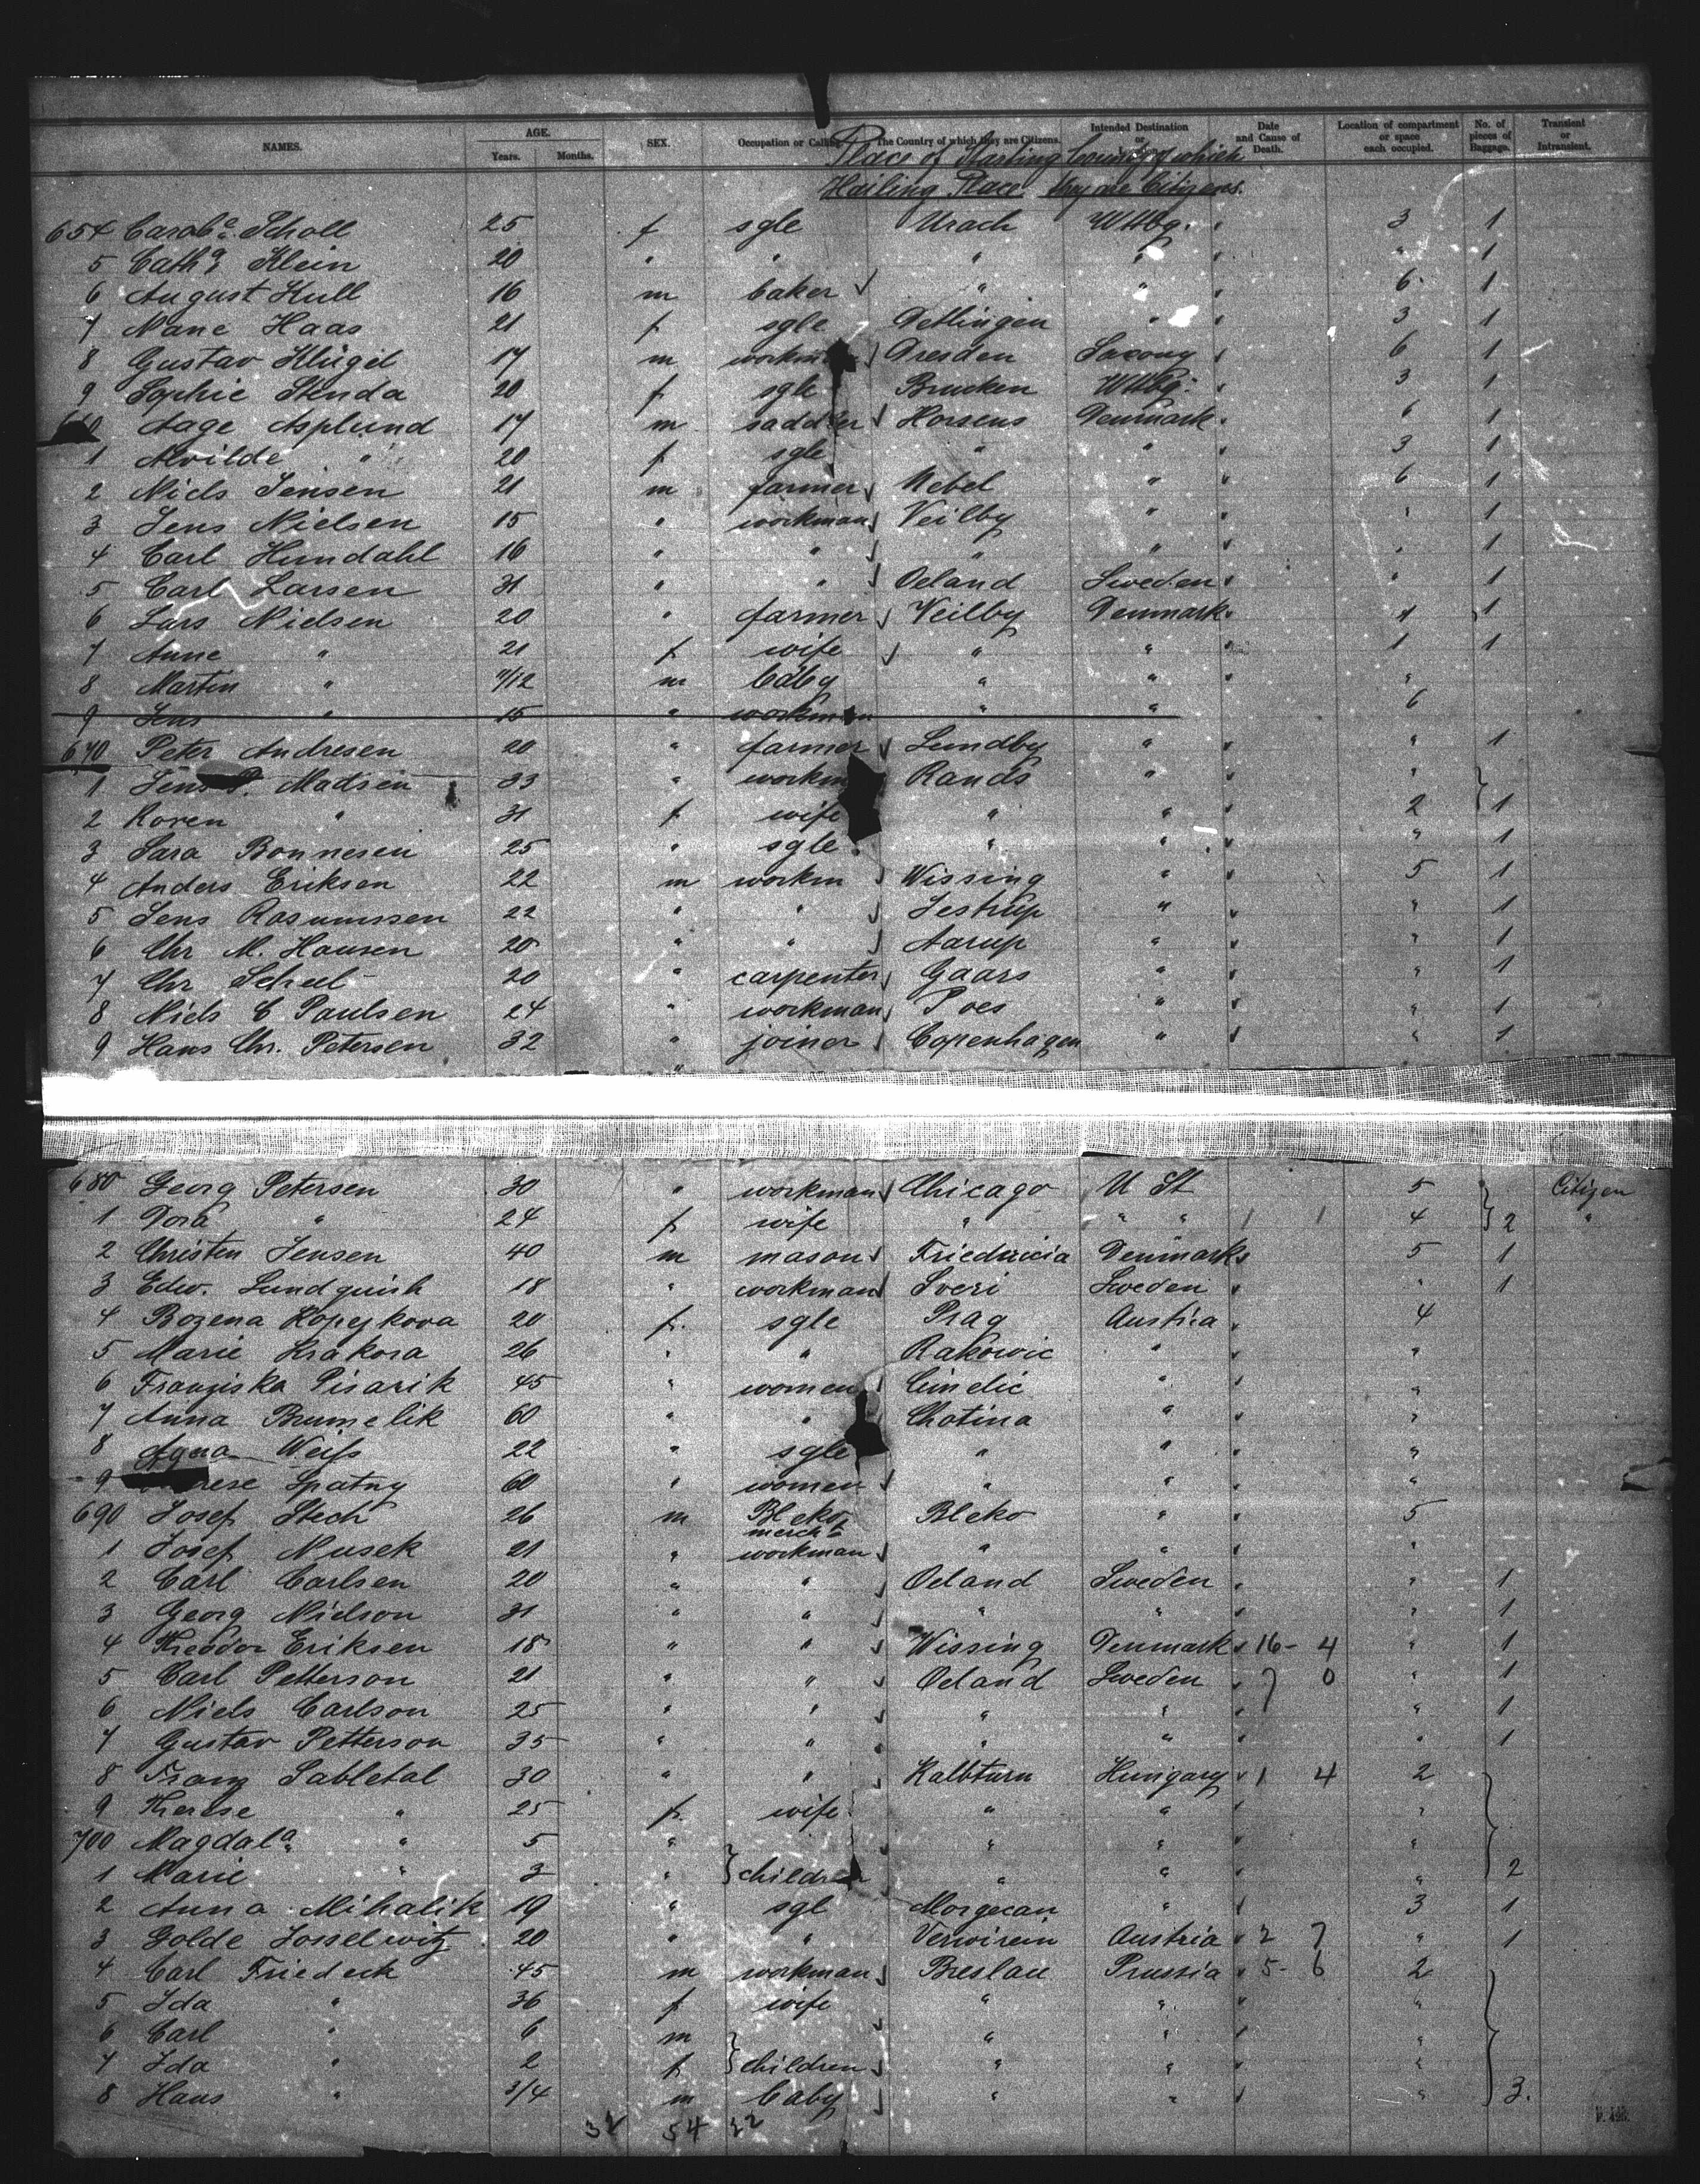 NAMES. AGE. Years. Months. SEX. Occupation or Calling The Country of which they are Citizens. Intended Destination or Location. Date and Cause of Death. Location of compartment or space each occupied. No. of pieces of Baggage. Transient or Intransient.
Place of Starting Country of which
Hailing Place they are Citizens.
654 Carole. Scholl 25 f sgle Urach Wttbg. 3 1
5 Catha. Klein 20 " " " " " 1
6 August Hull 16 m baker " " 6 1
7 Nane Haas 21 f sgle Dettingen " 3 1
8 Gustav Klügel 17 m workman Dresden Saxony 6 1
9 Sophie Stenda 20 f sgle Brucken Wttbg. 3 1
660 Aage Asplund 17 m saddler Horsens Denmark 6 1
1 Alvilde " 20 f sgle " " 3 1
2 Niels Jensen 21 m farmer Nebel " 6 1
3 Jens Nielsen 15 " workman Veilby " " 1
4 Carl Hundahl 16 " " " " " 1
5 Carl Larsen 31 " " Oeland Sweden " 1
6 Lars Nielsen 20 " farmer Veilby Denmark 1 1
7 Anne " 21 f wife " " 1 1
8 Martin " 11/12 m baby " " "
9 Jens " 15 " workman " " 6
670 Peter Andresen 20 " farmer Lundby " " 1
1 Jens P. Madsen 33 " workm Rands " "
2 Karen " 31 f wife " " 2 1
3 Sara Bonnesen 25 " sgle " " " 1
4 Anders Eriksen 22 m workm Wissing " 5 1
5 Jens Rasumssen 22 " " Jestrup " " 1
6 Chr M. Hansen 20 " " Aarup " " 1
7 Chr Scheel 20 " carpenter Gaars " " 1
8 Niels C Paulsen 24 " workman Poes " " 1
9 Hans Chr. Petersen 32 " joiner Copenhagen " " 1
680 Georg Petersen 30 " workman Chicago U St 5 Citizen
1 Dora " 24 f wife " " " 4 2 "
2 Christen Jensen 40 m mason Friedricia Denmark 5 1
3 Edw. Lundquish 18 " workman Sveri Sweden " 1
4 Bozena Kopejkova 20 f. sgle Prag Austria 4
5 Marie Krakora 26 " " Rakowic " "
6 Franziska Pisarik 45 " women Cimelic " "
7 Anna Brumelik 60 " " Chotina " "
8 Agna Weiss 22 " sgle " " "
9 rese Spatny 60 " women " " "
690 Josef Stech 26 m Bleko mercht Bleko " 5
1 Josef Nusek 21 " workman " " "
2 Carl Carlsen 20 " " Oeland Sweden " 1
3 Georg Nielson 31 " " " " " 1
4 Theodor Eriksen 18 " " Wissing Denmark 16- 4 " 1
5 Carl Petterson 21 " " Oeland Sweden 7 0 " 1
6 Niels Carlson 25 " " " " " 1
7 Gustav Petterson 35 " " " " " 1
8 Franz Sabletal 30 " " Kalbturn Hungary 1 4 2
9 Therese " 25 f. wife " " "
700 Magdala. " 5 " " " "
1 Marie " 3 " children " " " 2
2 Anna Mihalik 19 " sgl Morgecan " 3 1
3 Golde Josselwitz 20 " " Verwirein Austria 2 7 " 1
4 Carl Friedeck 45 m workman Breslau Prussia 5- 6 2
5 Ida " 36 f wife " " "
6 Carl " 6 m " " "
7 Ida " 2 f children " " "
8 Hans " 3/4 m baby " " " 3.
32 54 22